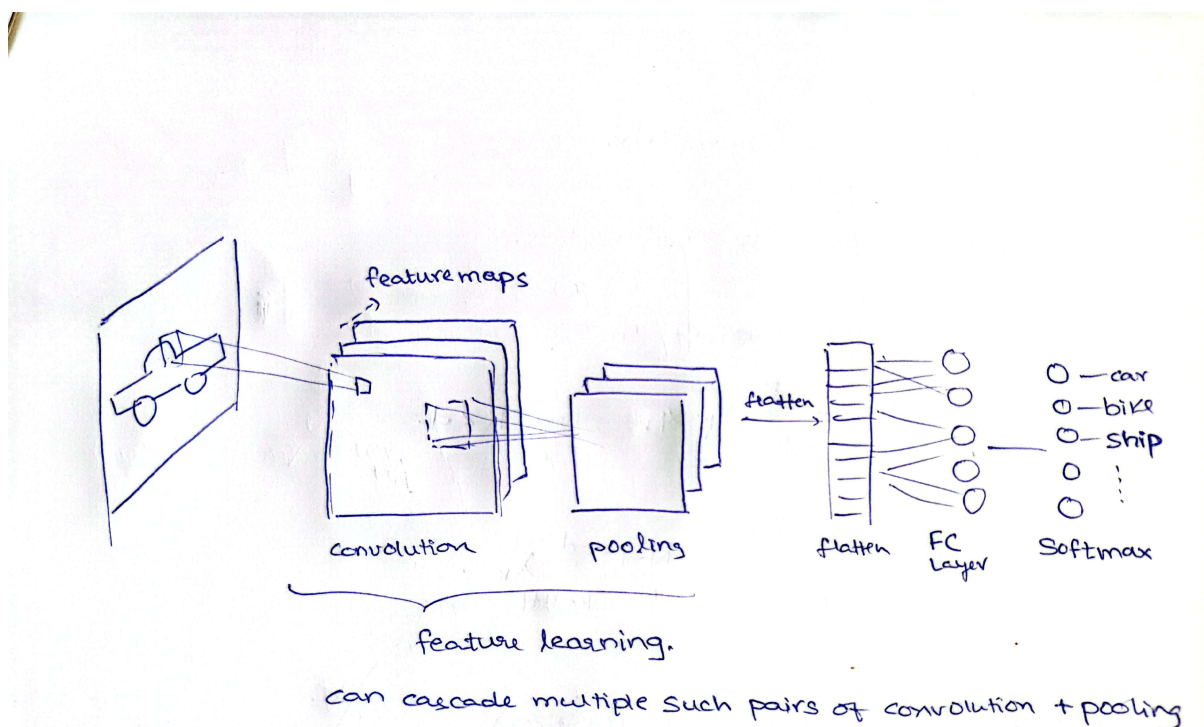 feature maps
flatten
car
bike
ship
convolution
pooling
flatten
FC
Layer
Softmax
feature learning.
can cascade multiple such pairs of convolution + pooling